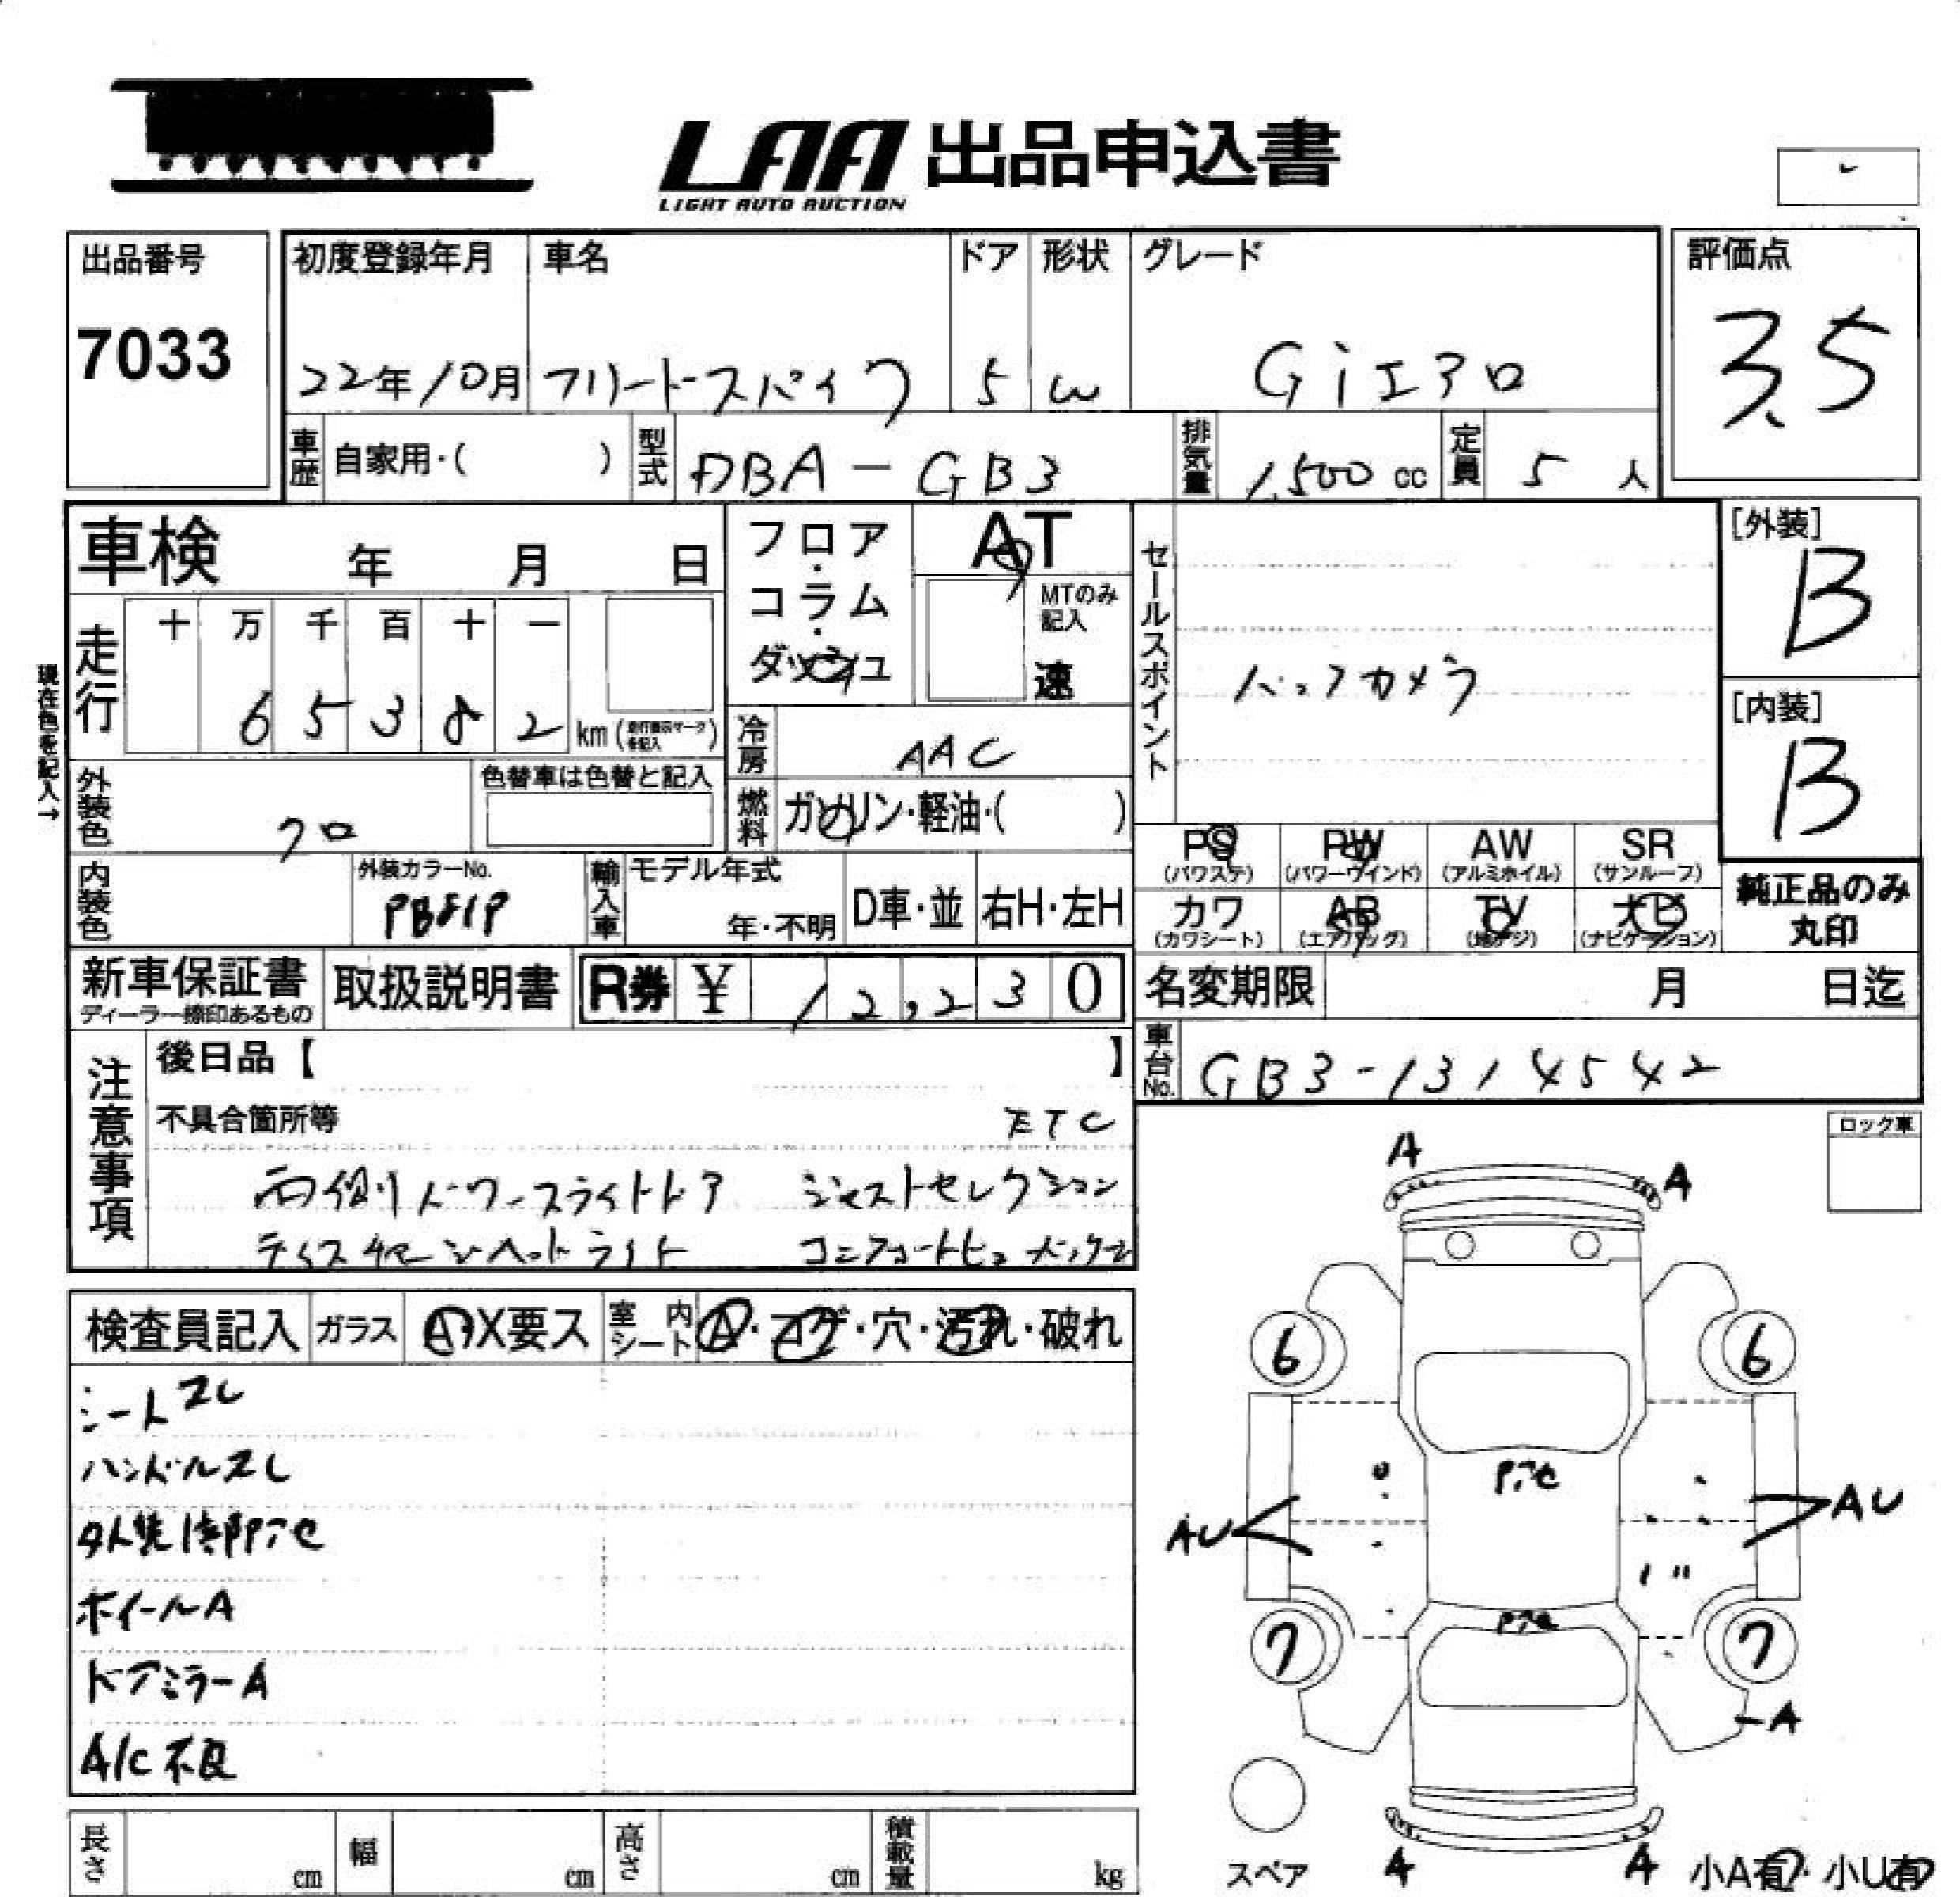 LAA 出品申込書
LIGHT AUTO AUCTION
出品番号 初度登録年月 車名 ドア 形状 グレード 評価点
7033 22年10月 フリードスパイク 5 W Giエアロ 3.5
車歴 自家用・( ) 型式 DBA-GB3 排気量 1,500cc 定員 5人
車検 年 月 日
フロア・コラム・ダッシュ
AT
MTのみ記入
速
セールスポイント
バックカメラ
[外装]
B
[内装]
B
現在色を記入→
走行 十 万 千 百 十 一
6 5 3 8 2 km(走行表示マークを記入)
冷房 AAC
外装色 クロ 色替車は色替と記入
燃料 ガソリン・軽油・( )
PS PW AW SR
(パワステ) (パワーウインド) (アルミホイル) (サンルーフ)
カワ AB TV ナビ
(カワシート) (エアバッグ) (地デジ) (ナビゲーション)
純正品のみ
丸印
内装色 外装カラーNo. PB81P 輸入車 モデル年式 年・不明 D車・並 右H・左H
新車保証書 取扱説明書 R券 ¥ 12,230 名変期限 月 日迄
ディーラー捺印あるもの
注意事項 後日品【 】
車台No. GB3-1314542
不具合箇所等 ETC
両側パワースライドドア ジャストセレクション
ディスチャージヘッドライト コンフォートビューパッケージ
ロック車
検査員記入 ガラス A・X要ス 室内シート A・コゲ・穴・汚れ・破れ
シートスレ
ハンドルスレ
外装傷部アセ
ホイールA
ドアミラーA
A/C不良
A A
6 6
AU AU
7 7
-A
A A
スペア 小A有・小U有
長さ cm 幅 cm 高さ cm 積載量 kg